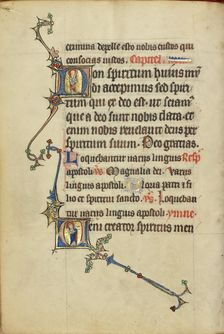 crimina depelle esto nobis custos qui
consocias iustos. Capitel
Non spiritum huius mun
di accepimus sed spiri
tum qui ex deo est ut sciam
que a deo nobis data
nobis reuelauit deus per
spiritum suum. Deo gratias.
Loquebantur uariis linguis Resp
apostoli. Magnalia dei. Variis
linguis apostoli. Gloria patri et fi
lio et spiritui sancto. Loqueban
tur uariis linguis apostoli. ymne
Veni creator spiritus men